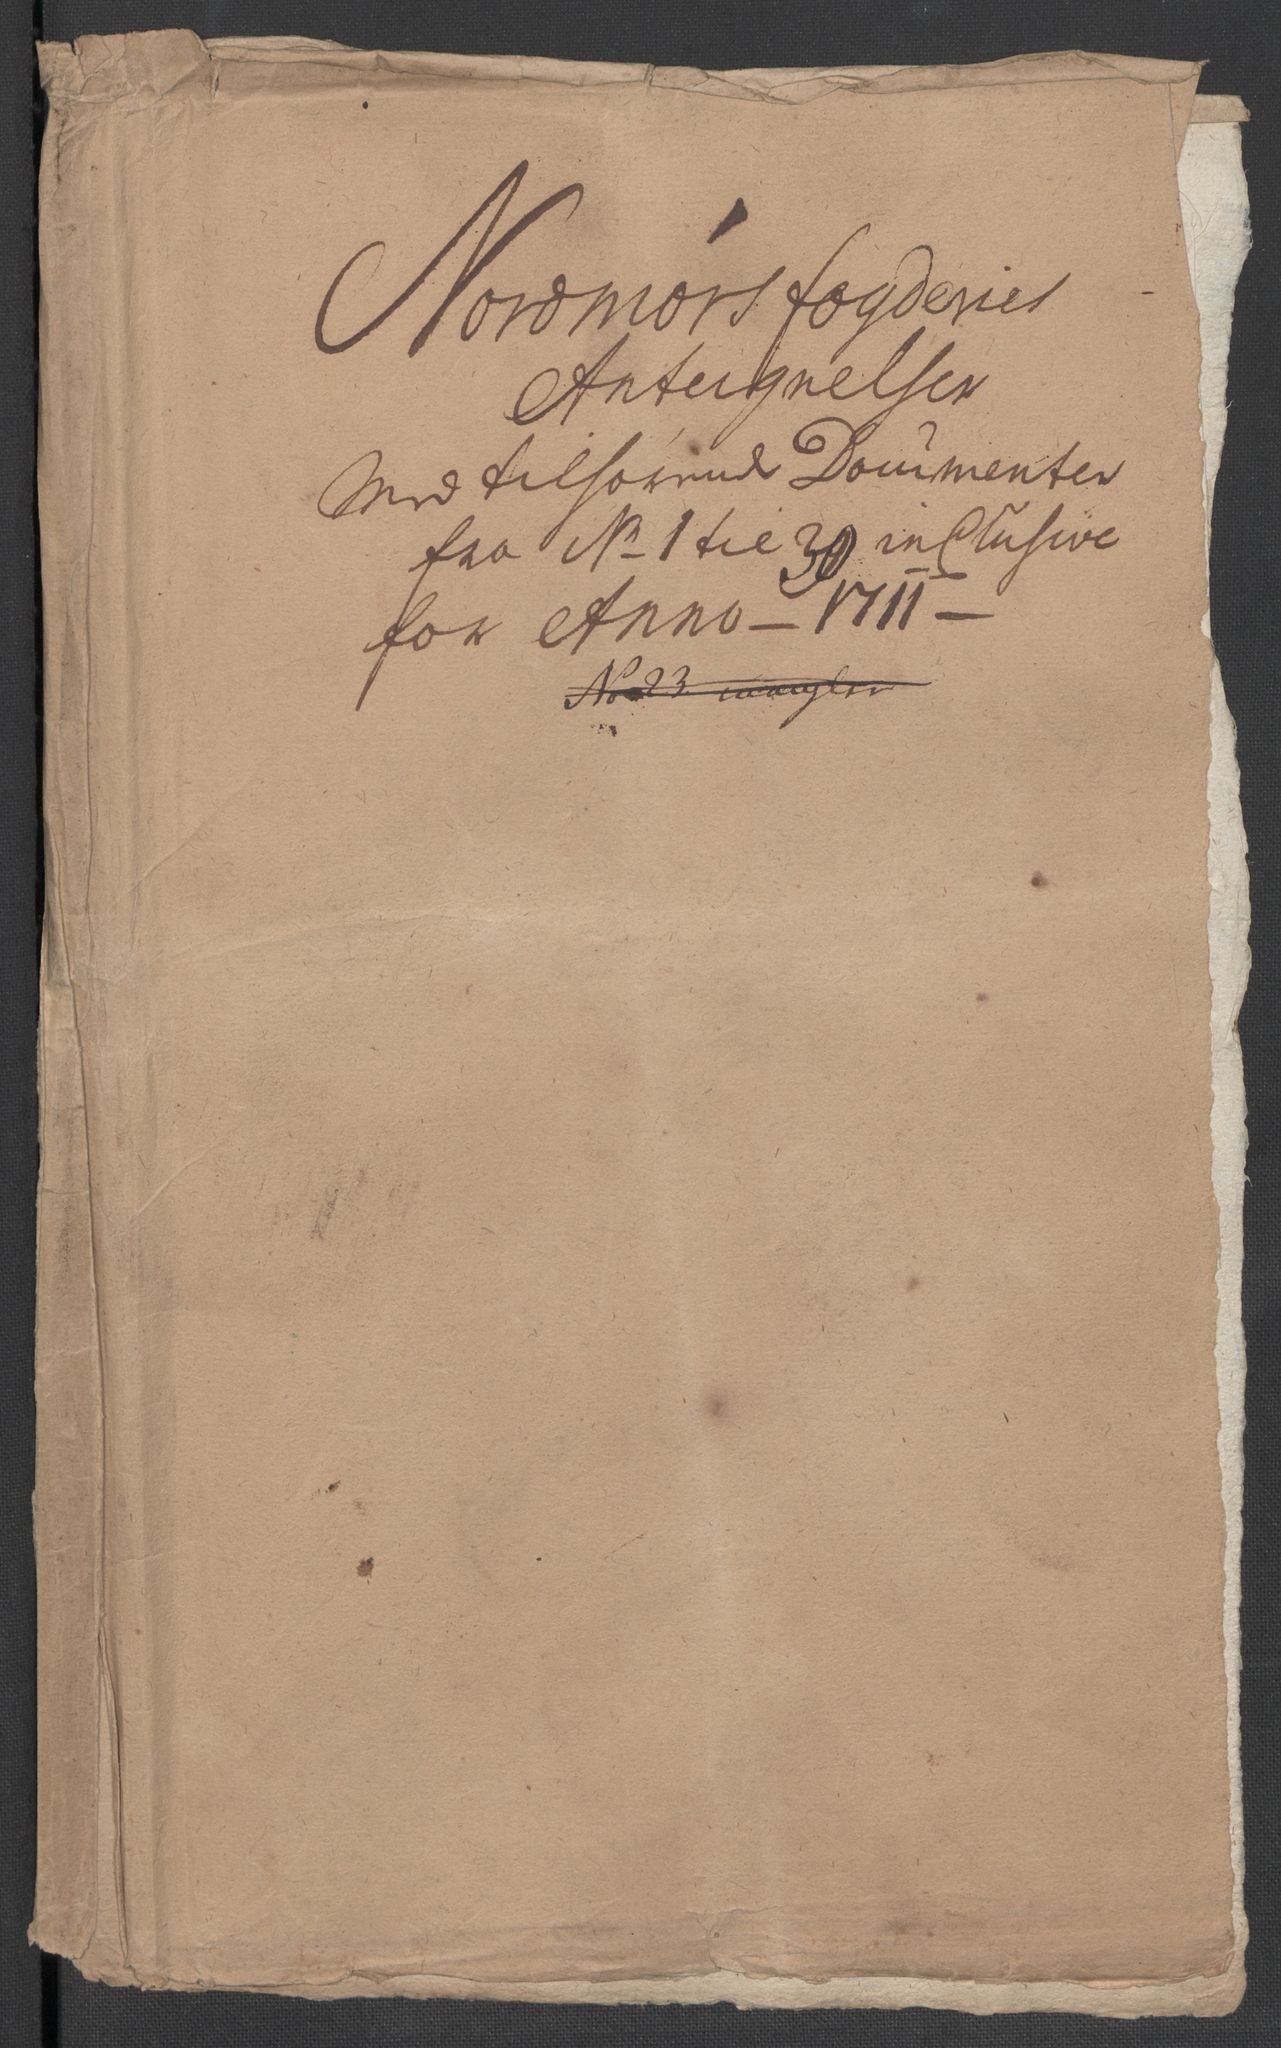 Nordmørs fogderies
Anteignelser
Med tilhørende Documenter
fra No 1 til 30 inclusive
for Anno – 1711 –
No 23 mangler